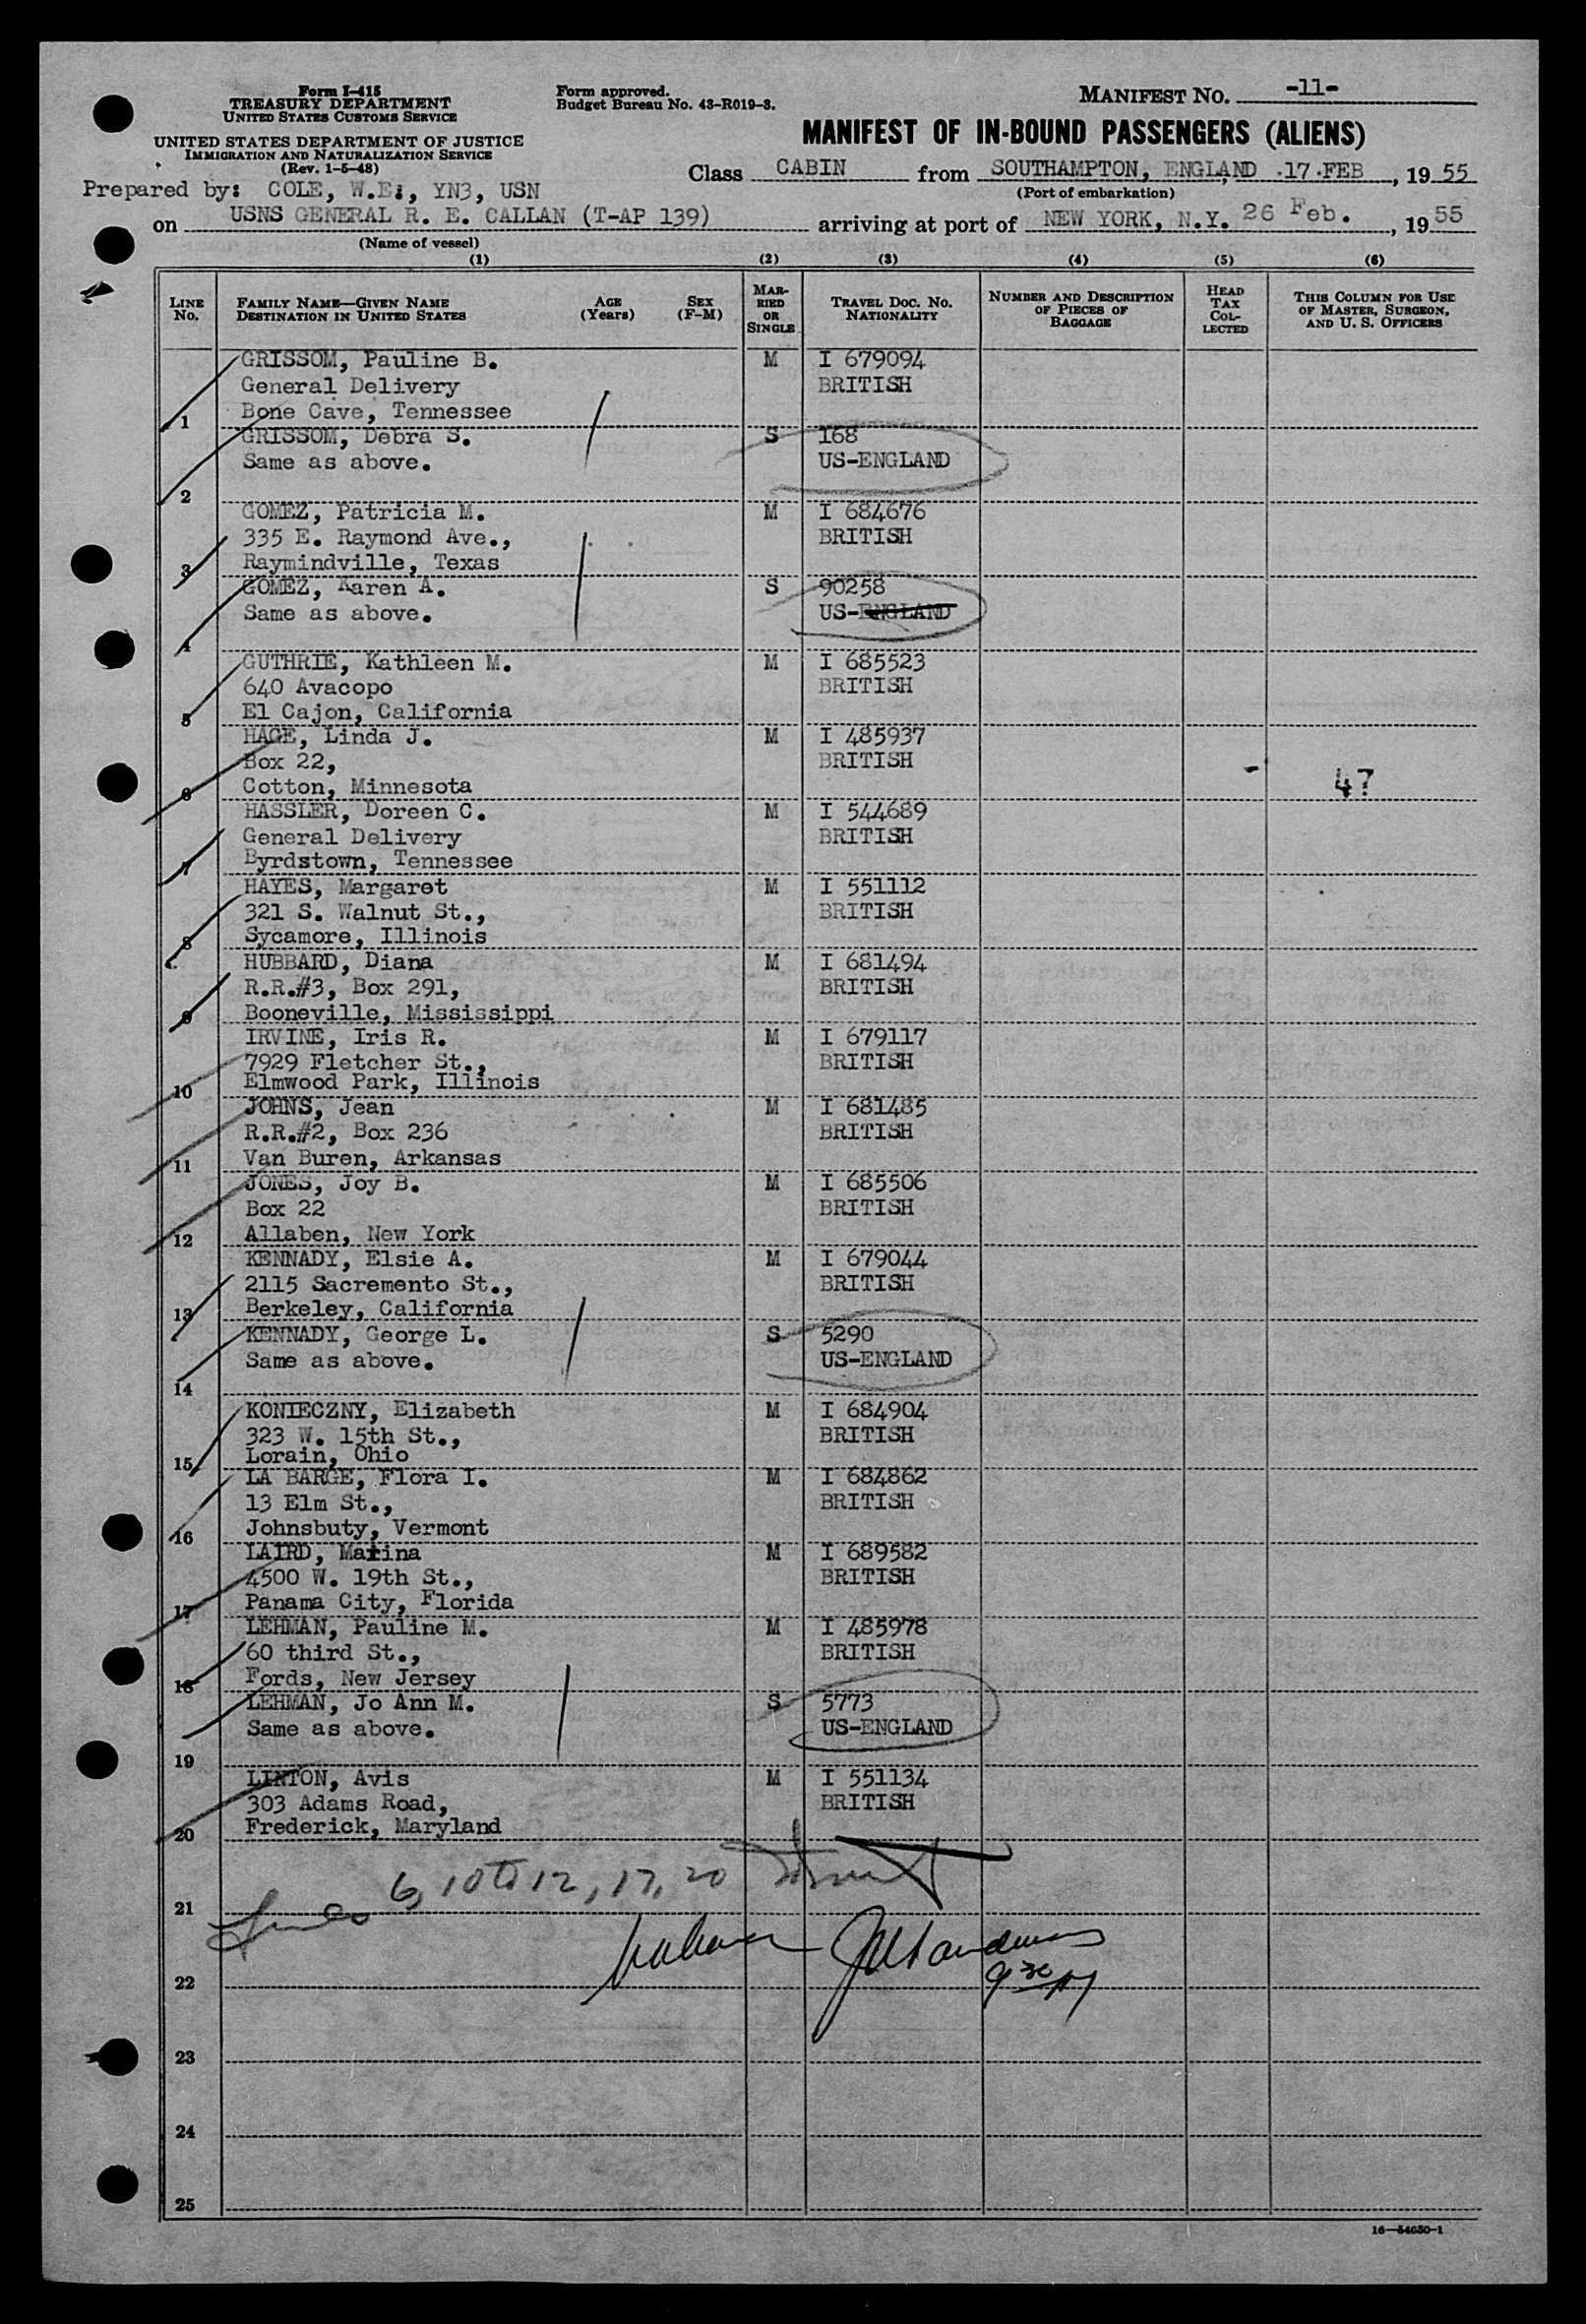 Form I-415
TREASURY DEPARTMENT
UNITED STATES CUSTOMS SERVICE
UNITED STATES DEPARTMENT OF JUSTICE
IMMIGRATION AND NATURALIZATION SERVICE
(Rev. 1-5-48)
Form approved.
Budget Bureau No. 43-R019-3.
MANIFEST NO. -11-
MANIFEST OF IN-BOUND PASSENGERS (ALIENS)
Prepared by: COLE, W.E., YN3, USN
Class CABIN from SOUTHAMPTON, ENGLAND 17 FEB, 1955
(Port of embarkation)
on USNS GENERAL R. E. CALLAN (T-AP 139) arriving at port of NEW YORK, N.Y. 26 Feb., 1955
(Name of vessel)
(1) (2) (3) (4) (5) (6)
LINE NO.
FAMILY NAME—GIVEN NAME
DESTINATION IN UNITED STATES
AGE (Years)
SEX (F-M)
MARRIED OR SINGLE
TRAVEL DOC. NO.
NATIONALITY
NUMBER AND DESCRIPTION OF PIECES OF BAGGAGE
HEAD TAX COLLECTED
THIS COLUMN FOR USE OF MASTER, SURGEON, AND U. S. OFFICERS
GRISSOM, Pauline B. M I 679094
General Delivery BRITISH
1 Bone Cave, Tennessee
GRISSOM, Debra S. S 168
Same as above. US-ENGLAND
2
GOMEZ, Patricia M. M I 684676
335 E. Raymond Ave., BRITISH
3 Raymindville, Texas
GOMEZ, Karen A. S 90258
Same as above. US-ENGLAND
4
GUTHRIE, Kathleen M. M I 685523
640 Avacopo BRITISH
5 El Cajon, California
HAGE, Linda J. M I 485937
Box 22, BRITISH
6 Cotton, Minnesota - 47
HASSLER, Doreen C. M I 544689
General Delivery BRITISH
7 Byrdstown, Tennessee
HAYES, Margaret M I 551112
321 S. Walnut St., BRITISH
8 Sycamore, Illinois
HUBBARD, Diana M I 681494
R.R.#3, Box 291, BRITISH
9 Booneville, Mississippi
IRVINE, Iris R. M I 679117
7929 Fletcher St., BRITISH
10 Elmwood Park, Illinois
JOHNS, Jean M I 681485
R.R.#2, Box 236 BRITISH
11 Van Buren, Arkansas
JONES, Joy B. M I 685506
Box 22 BRITISH
12 Allaben, New York
KENNADY, Elsie A. M I 679044
2115 Sacremento St., BRITISH
13 Berkeley, California
KENNADY, George L. S 5290
Same as above. US-ENGLAND
14
KONIECZNY, Elizabeth M I 684904
323 W. 15th St., BRITISH
15 Lorain, Ohio
LA BARGE, Flora I. M I 684862
13 Elm St., BRITISH
16 Johnsbuty, Vermont
LAIRD, Marina M I 689582
4500 W. 19th St., BRITISH
17 Panama City, Florida
LEHMAN, Pauline M. M I 485978
60 third St., BRITISH
18 Fords, New Jersey
LEHMAN, Jo Ann M. S 5773
Same as above. US-ENGLAND
19
LINTON, Avis M I 551134
303 Adams Road, BRITISH
20 Frederick, Maryland
21 Lines 6, 10 to 12, 17, 20
22 9 30
23
24
25
16—54650-1